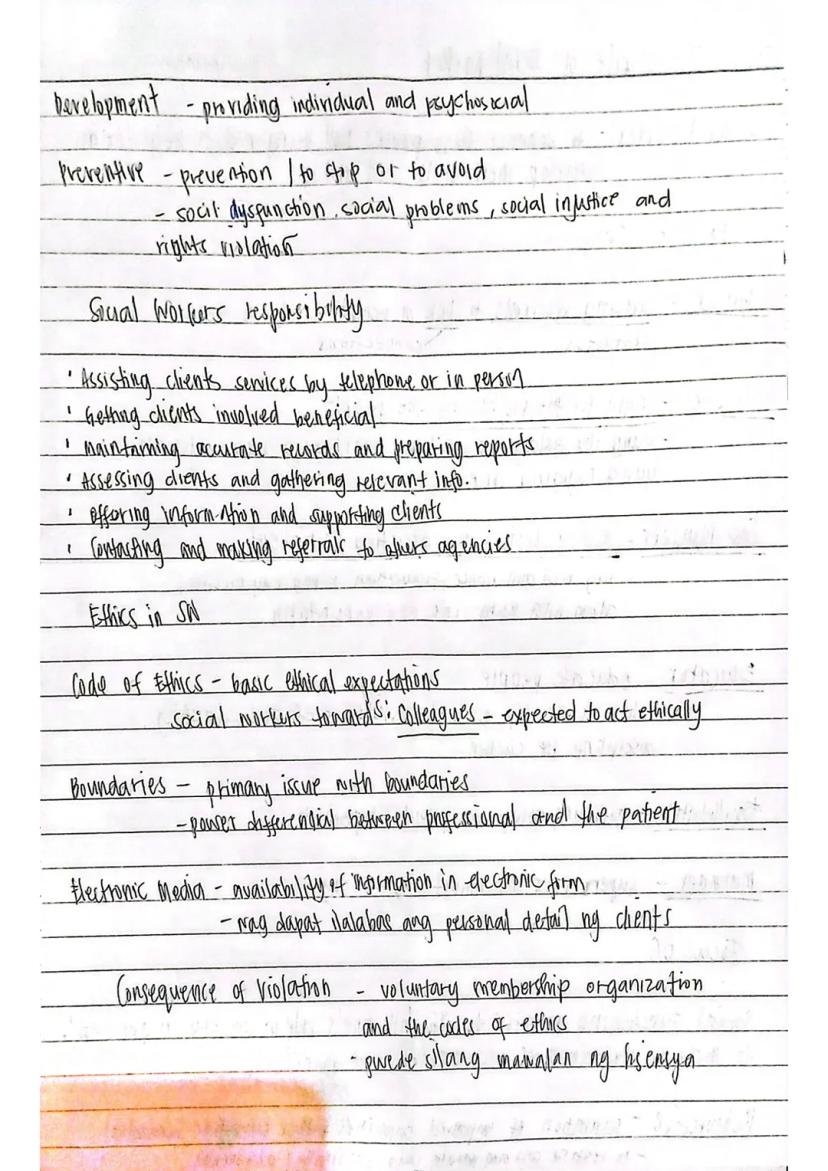 Development - providing individual and psychosocial
Preventive - prevention / to stop or to avoid
- socil dysfunction, social problems, social injustice and
rights violation
Social Workers responsibility
· Assisting clients services by telephone or in person
· Getting clients involved beneficial
· maintaining accurate records and preparing reports
· Assessing clients and gathering relevant info.
· offering information and supporting clients
· Contacting and making referrals to others agencies
Ethics in SW
Code of Ethics - basic ethical expectations
social workers towards: Colleagues - expected to act ethically
Boundaries - primary issue with boundaries
- power differential between professional and the patient
Electronic Media - availability of information in electronic form
- wag dapat ilalabas ang personal detail ng clients
Consequence of Violation - voluntary membership organization
and the codes of ethics
- pwede silang mawalan ng lisensya